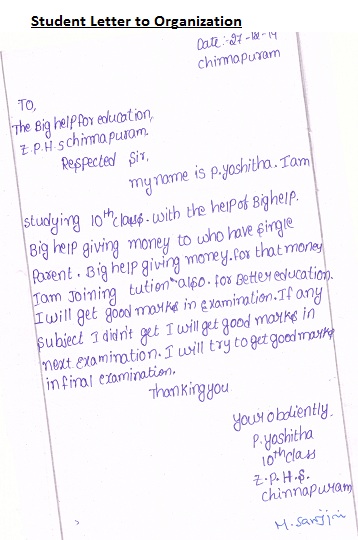 Student Letter to Organization
Date:-27-12-14
chinnapuram
TO,
The Big help for education,
Z.P.H.S chinnapuram.
Respected Sir,
my name is P.yashitha. I am
studying 10th class. with the help of Bighelp.
Big help giving money to who have single
Parent. Big help giving money. for that money
I am Joining tution also. for Better education.
I will get good marks in examination. If any
subject I didn't get I will get good marks in
next examination. I will try to get good marks
in final examination.
Thanking you
your obdiently.
P.yashitha
10th class
Z.P.H.S.
chinnapuram